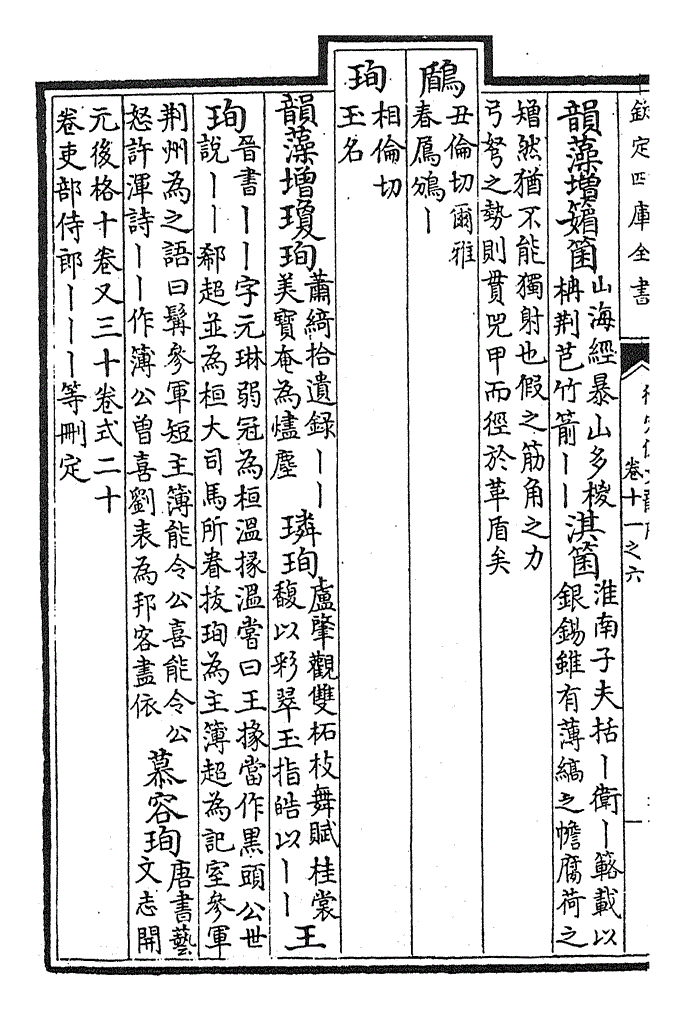 欽定四庫全書
卷十一之六
韻藻增䉋箘山海經暴山多椶
枏荆芑竹箭丨丨淇箘淮南子夫括丨衛丨簬載以
銀錫雖有薄縞之幨腐荷之
矰然猶不能獨射也假之筋角之力
弓弩之勢則貫兕甲而徑於革盾矣
鶞丑倫切爾雅
春鳸鳻丨
珣相倫切
玉名
韻藻增瓊珣蕭綺拾遺録丨丨
美寶奄為燼塵 璘珣盧肇觀雙柘枝舞賦桂裳
馥以彩翠玉指皓以丨丨 王
珣晉書丨丨字元琳弱冠為桓溫掾溫嘗曰王掾當作黒頭公世
說丨丨郗超並為桓大司馬所眷拔珣為主簿超為記室參軍
荆州為之語曰髯參軍短主簿能令公喜能令公
怒許渾詩丨丨作簿公曾喜劉表為邦客盡依 慕容珣唐書藝
文志開
元後格十卷又三十卷式二十
卷吏部侍郎丨丨丨等刪定